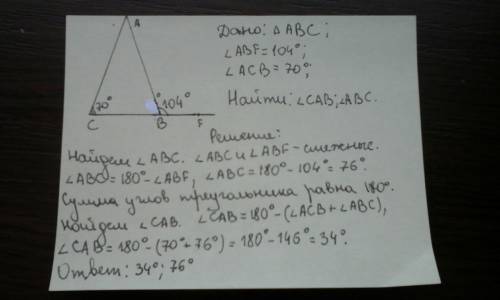 A
Дано: △ABC;
∠ABF=104°;
∠ACB=70°;
Найти: ∠CAB; ∠ABC.
70° 104°
C B F
Решение:
Найдем ∠ABC. ∠ABC и ∠ABF - смежные.
∠ABC=180°-∠ABF, ∠ABC=180°-104°=76°.
Сумма углов треугольника равна 180°.
Найдем ∠CAB. ∠CAB=180°-(∠ACB+∠ABC),
∠CAB=180°-(70°+76°)=180°-146°=34°.
Ответ: 34°; 76°